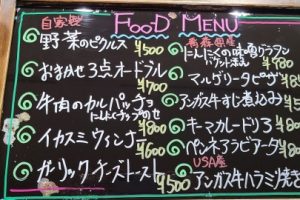 FOOD MENU
自家製
野菜のピクルス ¥500
おまかせ3点オードブル ¥700
牛肉のカルパッチョ ¥800
イカスミウィンナー ¥600
ガーリックチーズトースト ¥500
青森県産
にんにくの味噌グラタン
バケット添え ¥980
マルゲリータピザ ¥8
アンガス牛すじ煮込み ¥5
キーマカレードリア ¥
ペンネアラビアータ ¥8
USA産
アンガス牛ハラミ焼き